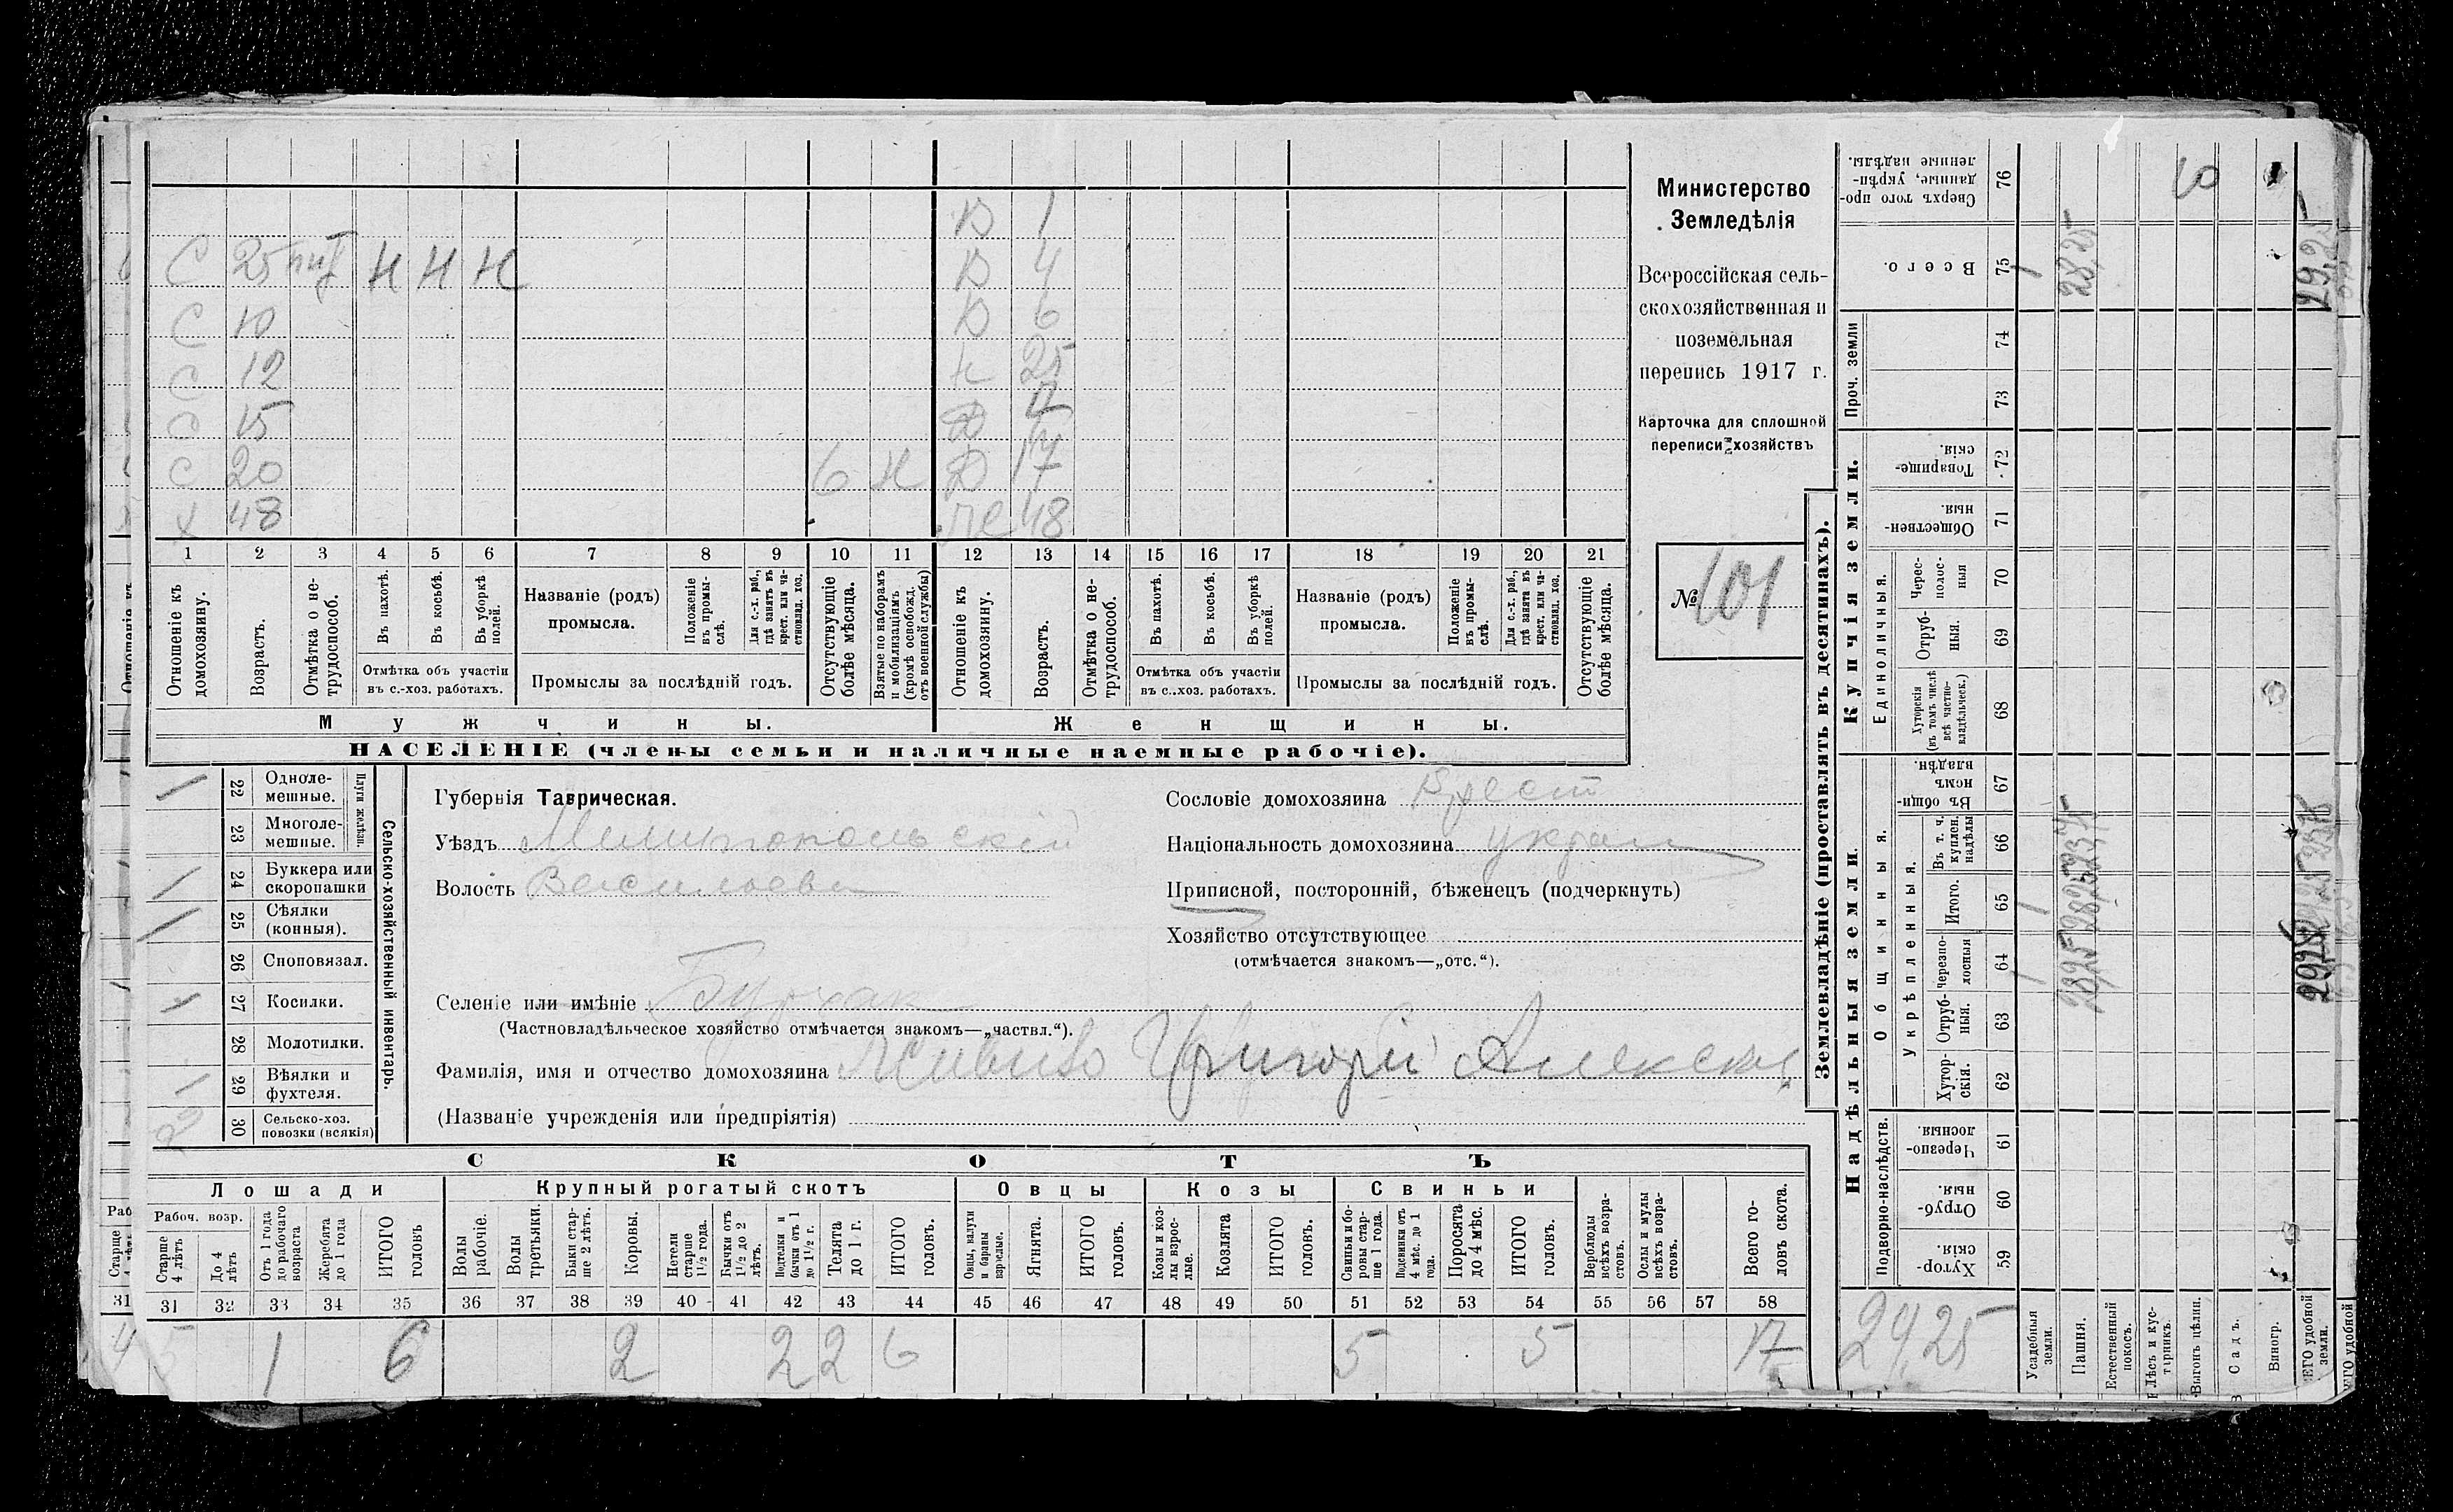 Д 1
С 25 Н Н Н Д 4
С 10 Д 6
С 12 Н 25
С 15 Д 12
С 20 6 Н Д 17
Х 48 48
1 2 3 4 5 6 7 8 9 10 11 12 13 14 15 16 17 18 19 20 21
Отношеніе къ домохозяину.
Возрастъ.
Отмѣтка о не-трудоспособ.
Въ пахотѣ.
Въ косьбѣ.
Въ уборкѣ полей.
Отмѣтка объ участіи
въ с.-хоз. работахъ.
Названіе (родъ)
промысла.
Положеніе въ промы-слѣ.
Для с.-х. раб., гдѣ занятъ въ крест. или ча-стновлад. хоз.
Промыслы за послѣдній годъ.
Отсутствующіе болѣе мѣсяца.
Взятые по наборамъ и мобилизаціямъ (кромѣ освобожд. отъ военной службы)
Отношеніе къ домохозяину.
Возрастъ.
Отмѣтка о не-трудоспособ.
Въ пахотѣ.
Въ косьбѣ.
Въ уборкѣ полей.
Отмѣтка объ участіи
въ с.-хоз. работахъ.
Названіе (родъ)
промысла.
Положеніе въ промы-слѣ.
Для с.-х. раб., гдѣ занята въ крест. или ча-стновлад. хоз.
Промыслы за послѣдній годъ.
Отсутствующіе болѣе мѣсяца.
Мужчины.
Женщины.
НАСЕЛЕНІЕ (члены семьи и наличные наемные рабочіе).
Министерство
Земледѣлія
Всероссійская сель-
скохозяйственная и
поземельная
перепись 1917 г.
Карточка для сплошной
переписи хозяйствъ
№ 101
Сельско-хозяйственный инвентарь.
Плуги желѣзн.
22 Одноле-мешные.
23 Многоле-мешные.
24 Буккера или скоропашки
25 Сѣялки (конныя).
26 Споповязал.
27 Косилки.
28 Молотилки.
29 Вѣялки и фухтеля.
30 Сельско-хоз. повозки (всякія) 2
Губернія Таврическая.
Уѣздъ Мелитопольскій
Волость Васильевк
Селеніе или имѣніе Бурчак
(Частновладѣльческое хозяйство отмѣчается знакомъ—„частвл.“).
Фамилія, имя и отчество домохозяина Григорій Алексѣев
(Названіе учрежденія или предпріятія)
Сословіе домохозяина Крест
Національность домохозяина украин
Приписной, посторонній, бѣженецъ (подчеркнуть)
Хозяйство отсутствующее
(отмѣчается знакомъ—„отс.“).
СКОТЪ
Лошади Крупный рогатый скотъ Овцы Козы Свиньи
Рабоч. возр.
Старше 4 лѣтъ
До 4 лѣтъ
Отъ 1 года до рабочаго возраста
Жеребята до 1 года
ИТОГО головъ
Волы рабочіе.
Волы третьяки.
Быки стар-ше 2 лѣтъ.
Коровы.
Нетели старше 1½ года.
Бычки отъ 1½ до 2 лѣтъ.
Подтелки и бычки отъ 1 до 1½ г.
Телята до 1 г.
ИТОГО головъ.
Овцы, валухи и бараны взрослые.
Ягнята.
ИТОГО головъ.
Козы и коз-лы взрос-лые.
Козлята
ИТОГО головъ.
Свиньи и бо-ровы стар-ше 1 года.
Подсвинки отъ 4 мѣс. до 1 года.
Поросята до 4 мѣс.
ИТОГО головъ.
Верблюды всѣхъ возра-стовъ.
Ослы и мулы всѣхъ возра-стовъ.
Всего го-ловъ скота.
31 32 33 34 35 36 37 38 39 40 41 42 43 44 45 46 47 48 49 50 51 52 53 54 55 56 57 58
5 1 6 2 2 2 6 5 5 17
Землевладѣніе (проставлять въ десятинахъ).
Надѣльныя земли.
Купчія земли.
Проч. земли
Подворно-наслѣдств.
Общинныя.
Укрѣпленныя.
Единоличныя.
59 Хутор-скія.
60 Отруб-ныя.
61 Черезпо-лосныя.
62 Хутор-скія.
63 Отруб-ныя.
64 черезпо-лосныя
65 Итого.
66 Въ т. ч. куплен. надѣлы
67 Въ общи-номъ владѣн.
68 Хуторскія (въ томъ числѣ всѣ частно-владѣльческ.)
69 Отруб-ныя.
70 Черес-полос-ныя
71 Обществен-ныя.
72 Товарище-скія.
73
74
75 Всего.
76 Сверхъ того про-данные, укрѣп-ленные надѣлы.
Усадебныя земли.
Пашня. 28,25
Естественный покосъ.
Лѣсъ и кус-тарникъ.
Выгонъ цѣлин.
Садъ.
Виногр.
ЕГО удобной земли. 29,25
29,25